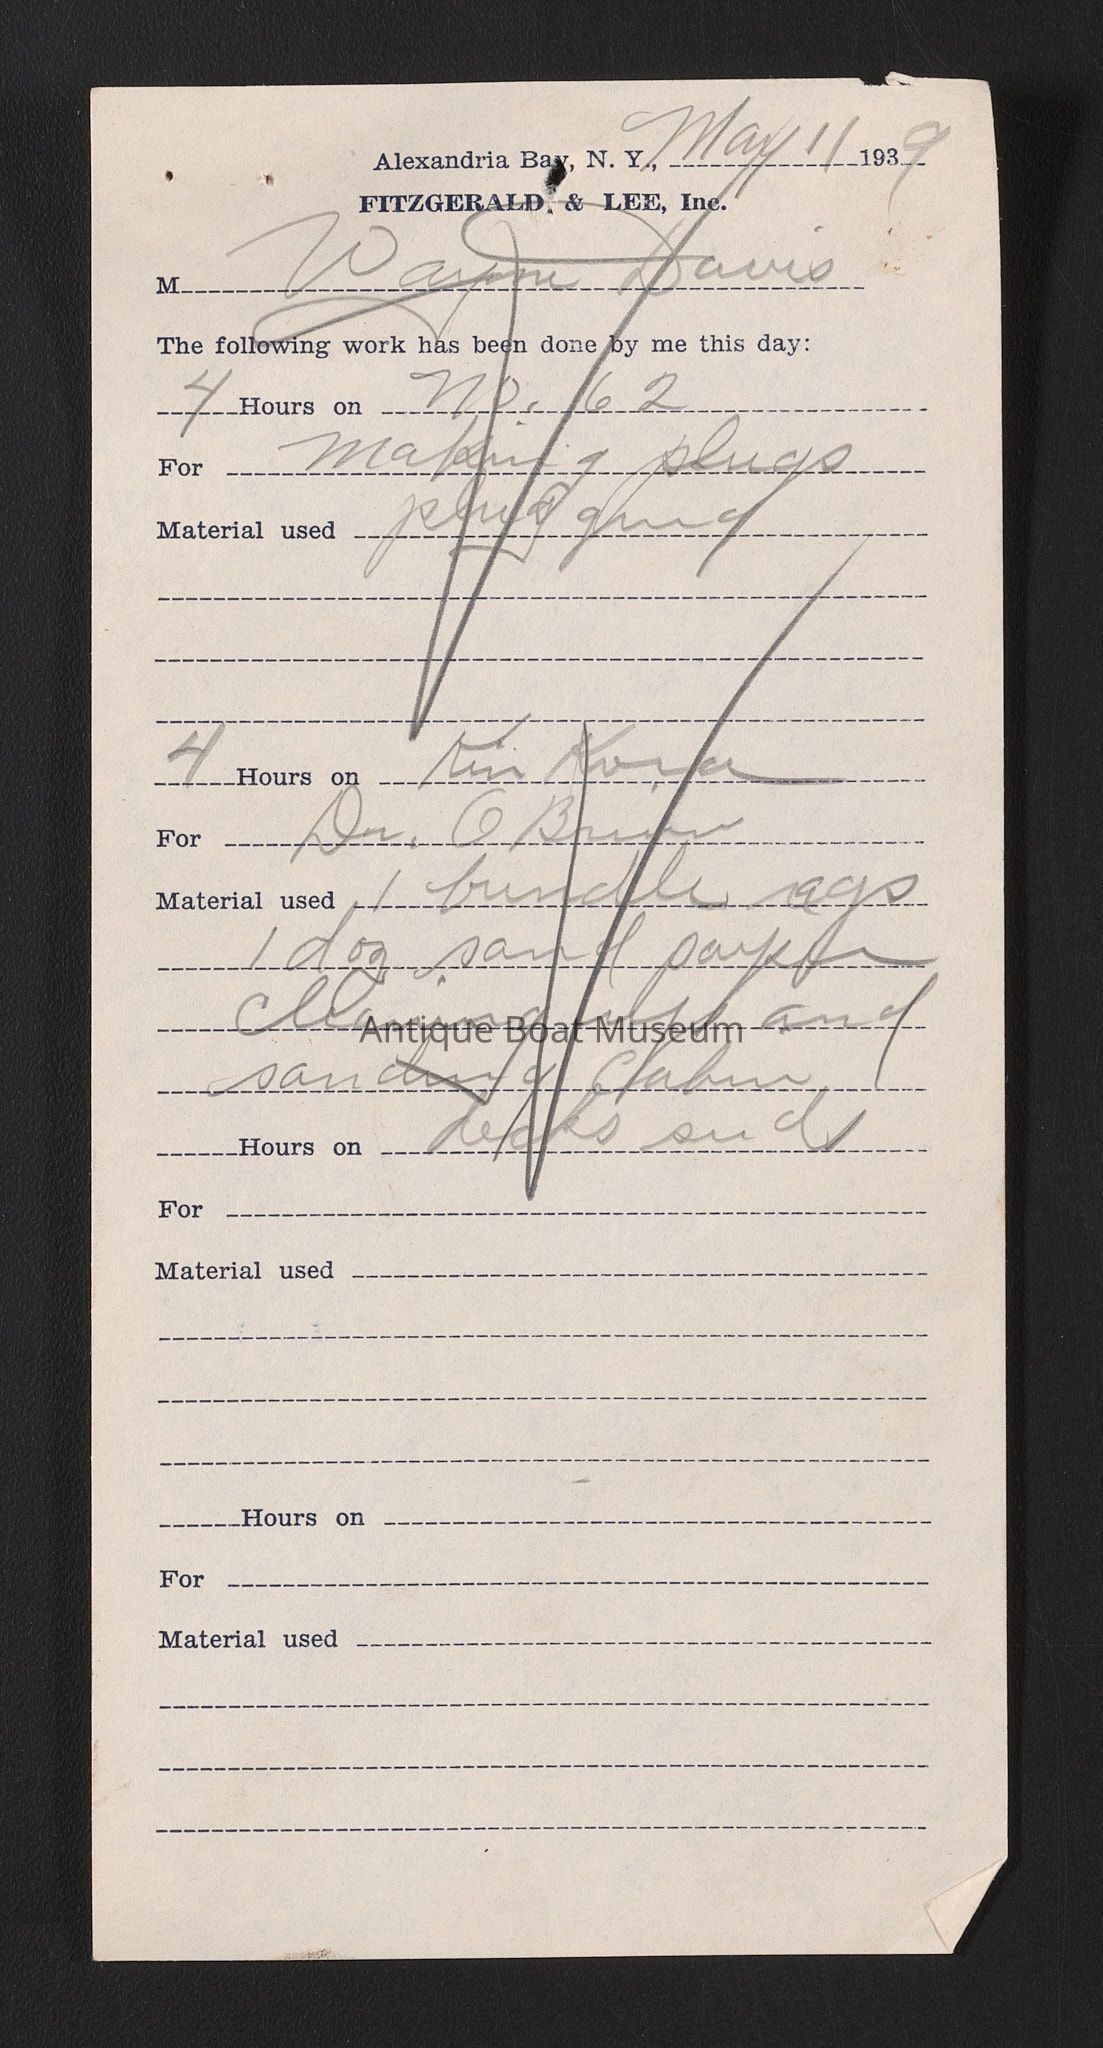 Alexandria Bay, N. Y., May 11 1939
FITZGERALD & LEE, Inc.
M Wayne Davis
The following work has been done by me this day:
4 Hours on No. 62
For making plugs
Material used plugging
4 Hours on Kin Kora
For Dr. O Brien
Material used 1 bundle rags
1 doz sand paper
cleaning up and
Antique Boat Museum
sanding Cabin
Hours on decks sides
For
Material used
Hours on
For
Material used